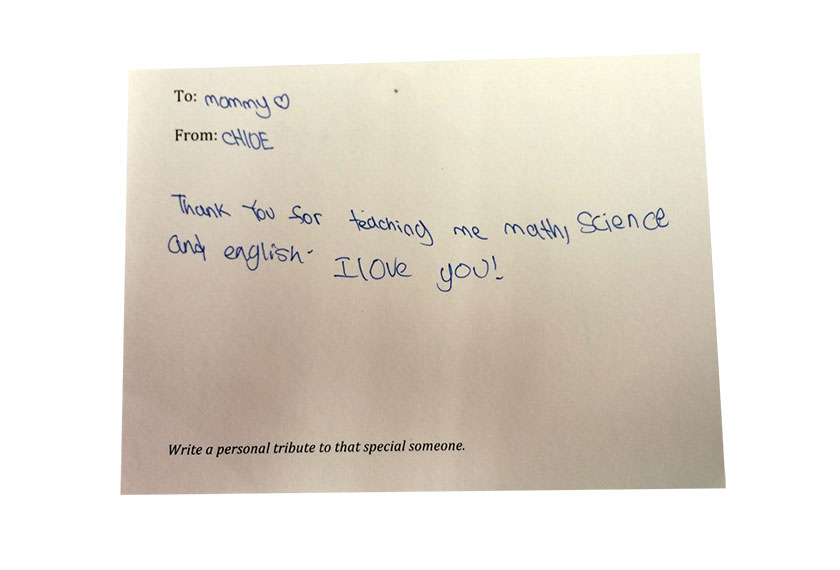 To: mommy♡
From: CHlOE
Thank You for teaching me math, Science
and english. I love you!
Write a personal tribute to that special someone.